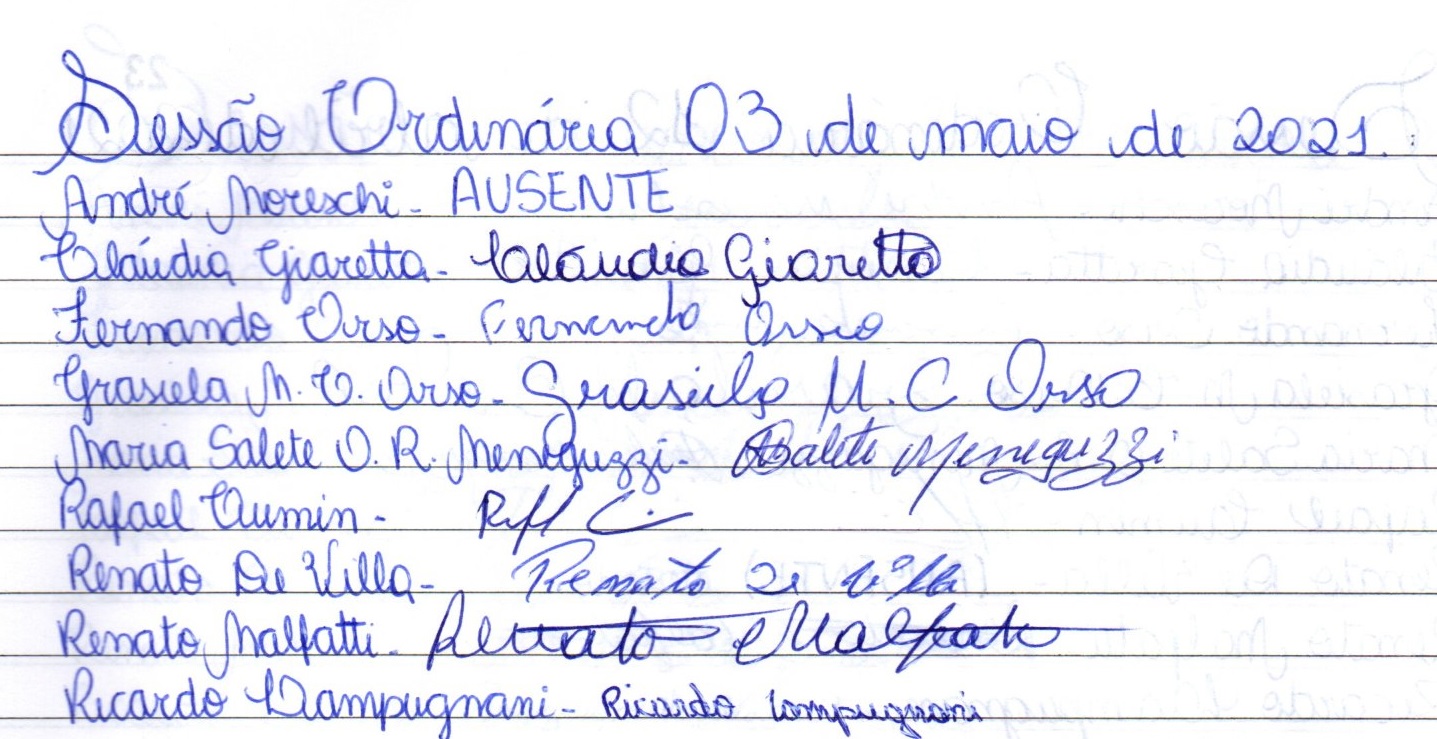 Sessão Ordinária 03 de maio de 2021.
André Moreschi - AUSENTE
Cláudia Giaretta - Claudia Giaretta
Fernando Orso - Fernando Orso
Grasiela M. C. Orso - Grasiela M. C Orso
Maria Salete O. R. Meneguzzi - Salete Meneguzzi
Rafael Cumin -
Renato De Villa - Renato De Villa
Renato Malfatti - Renato Malfatti
Ricardo Lampugnani - Ricardo Lampugnani